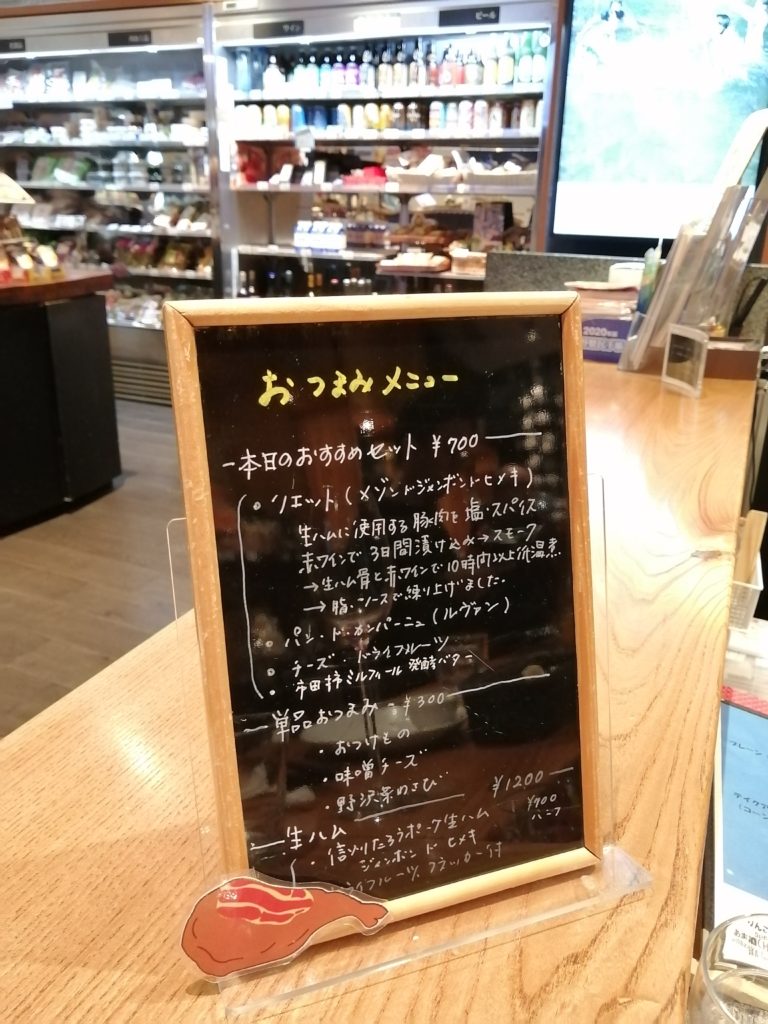 ワイン
ビール
2020
おつまみメニュー
本日のおすすめセット ¥700
・リエット(メゾンドジャンボンドヒメキ)
生ハムに使用する豚肉を塩・スパイス
赤ワインで3日間漬け込み→スモーク
→生ハム骨と赤ワインで10時間以上低温煮
→脂・ソースで練り上げました。
・パン・ド・カンパーニュ(ルヴァン)
・チーズ・ドライフルーツ
・市田柿ミルフィール 発酵バター
単品おつまみ ¥300
・おつけもの
・味噌チーズ
・野沢菜わさび
生ハム ¥1200
¥700
ハーフ
ポーク生ハム
ジャンボン ド ヒメキ
プレーン
りんご